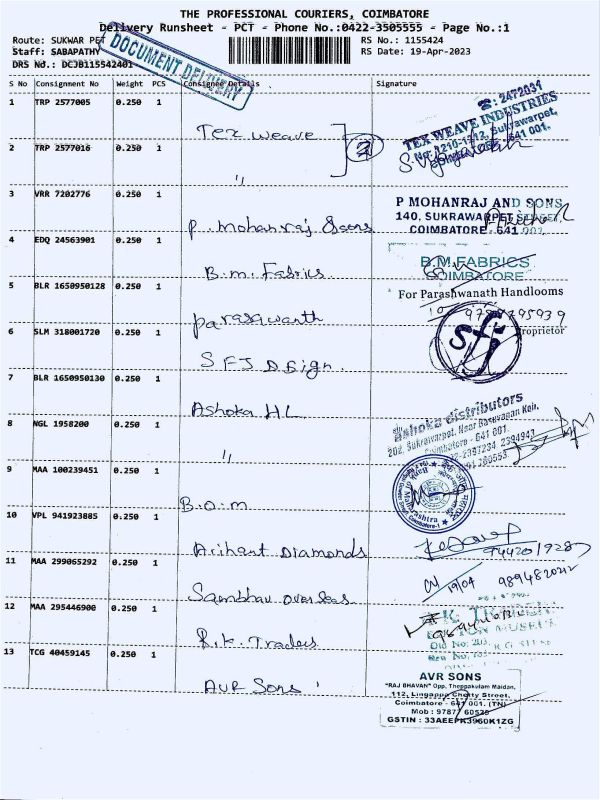 THE PROFESSIONAL COURIERS, COIMBATORE
Delivery Runsheet - PCT - Phone No.:0422-3505555 - Page No.:1
Route: SUKWAR PET
RS No.: 1155424
Staff: SABAPATHY
RS Date: 19-Apr-2023
DRS No.: DCJB115542401
DOCUMENT DELIVERY
S No Consignment No Weight PCS Consignee Details Signature
1 TRP 2577005 0.250 1
Tex weave
☎: 2472031
TEX WEAVE INDUSTRIES
No: 1210-1112, Sukrawarpet,
641 001.
2 TRP 2577016 0.250 1
2
"
3 VRR 7202776 0.250 1
P. mohanraj & sons
P MOHANRAJ AND SONS
140, SUKRAWARPET STREET,
COIMBATORE - 641 001.
4 EDQ 24563901 0.250 1
B.m. Fabrics
B.M.FABRICS
COIMBATORE
5 BLR 1650950128 0.250 1
Parasqwanth
For Parashwanath Handlooms
Proprietor
6 SLM 318001720 0.250 1
SFJ Design
sfj
7 BLR 1650950130 0.250 1
Ashoka HL
Ashoka distributors
202, Sukrawarpet, Near Basuvapan Koil,
Coimbatore - 641 001.
2397234, 2394943
8 NGL 1958200 0.250 1
"
9 MAA 100239451 0.250 1
B.O.M
Maharashtra
10 VPL 941923885 0.250 1
Arihant Diamonds
11 MAA 299065292 0.250 1
Sambhav overseas
19/04
12 MAA 295446900 0.250 1
R.K. Traders
Old No: 203,
13 TCG 40459145 0.250 1
AVR Sons
AVR SONS
"RAJ BHAVAN" Opp, Theppakulam Maidan,
112, Lingappa Chetty Street,
Coimbatore - 641 001. (TN)
Mob : 97877 60535
GSTIN : 33AEEPR3960K1ZG